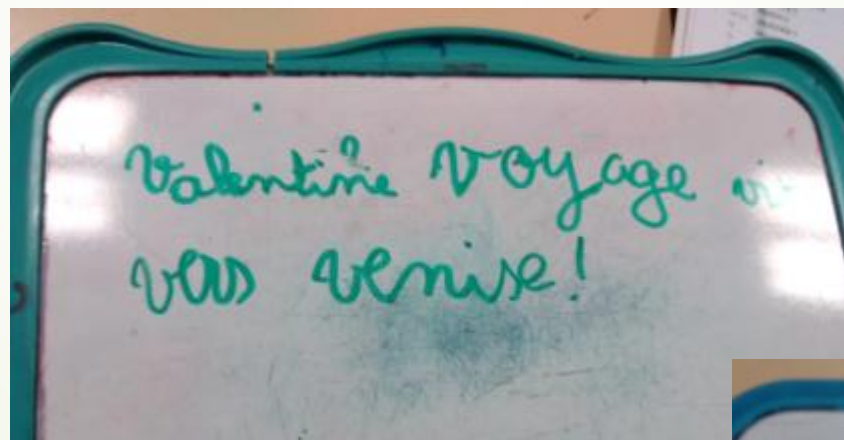 Valentine voyage
vers venise!